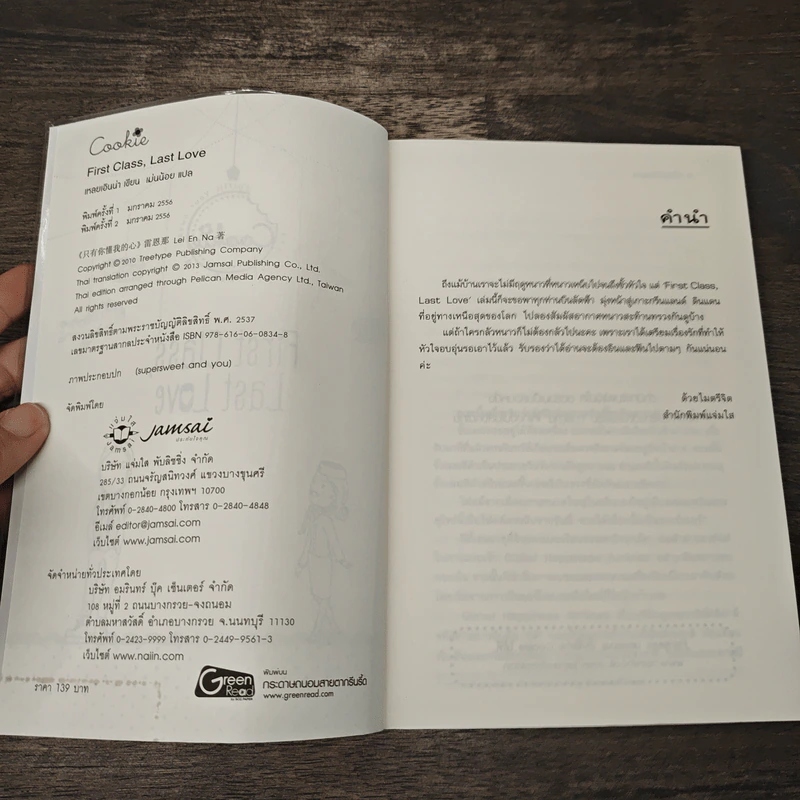 Cookie
First Class, Last Love
เหลยเอินน่า เขียน เม่นน้อย แปล
พิมพ์ครั้งที่ 1 มกราคม 2556
พิมพ์ครั้งที่ 2 มกราคม 2556
《只有你懂我的心》雷恩那 Lei En Na 著
Copyright © 2010 Treetype Publishing Company
Thai translation copyright © 2013 Jamsai Publishing Co., Ltd.
Thai edition arranged through Pelican Media Agency Ltd., Taiwan
All rights reserved
สงวนลิขสิทธิ์ตามพระราชบัญญัติลิขสิทธิ์ พ.ศ. 2537
เลขมาตรฐานสากลประจำหนังสือ ISBN 978-616-06-0834-8
ภาพประกอบปก (supersweet and you)
จัดพิมพ์โดย
แจ่มใส
jamsai
jamsai
ประทับใจคุณ
บริษัท แจ่มใส พับลิชชิ่ง จำกัด
285/33 ถนนจรัญสนิทวงศ์ แขวงบางขุนศรี
เขตบางกอกน้อย กรุงเทพฯ 10700
โทรศัพท์ 0-2840-4800 โทรสาร 0-2840-4848
อีเมล์ editor@jamsai.com
เว็บไซต์ www.jamsai.com
จัดจำหน่ายทั่วประเทศโดย
บริษัท อมรินทร์ บุ๊ค เซ็นเตอร์ จำกัด
108 หมู่ที่ 2 ถนนบางกรวย-จงถนอม
ตำบลมหาสวัสดิ์ อำเภอบางกรวย จ.นนทบุรี 11130
โทรศัพท์ 0-2423-9999 โทรสาร 0-2449-9561-3
เว็บไซต์ www.naiin.com
ราคา 139 บาท
Green
Read
พิมพ์บน
กระดาษถนอมสายตากรีนรี้ด
www.greenread.com
คำนำ
ถึงแม้บ้านเราจะไม่มีฤดูหนาวที่หนาวเหน็บไปจนถึงขั้วหัวใจ แต่ 'First Class,
Last Love' เล่มนี้ก็จะขอพาทุกท่านบินลัดฟ้า มุ่งหน้าสู่เกาะกรีนแลนด์ ดินแดน
ที่อยู่ทางเหนือสุดของโลก ไปลองสัมผัสอากาศหนาวสะท้านทรวงกันดูบ้าง
แต่ถ้าใครกลัวหนาวก็ไม่ต้องกลัวไปนะคะ เพราะเราได้เตรียมเรื่องรักที่ทำให้
หัวใจอบอุ่นรอเอาไว้แล้ว รับรองว่าได้อ่านจะต้องอินและฟินไปตามๆ กันแน่นอน
ค่ะ
ด้วยไมตรีจิต
สำนักพิมพ์แจ่มใส